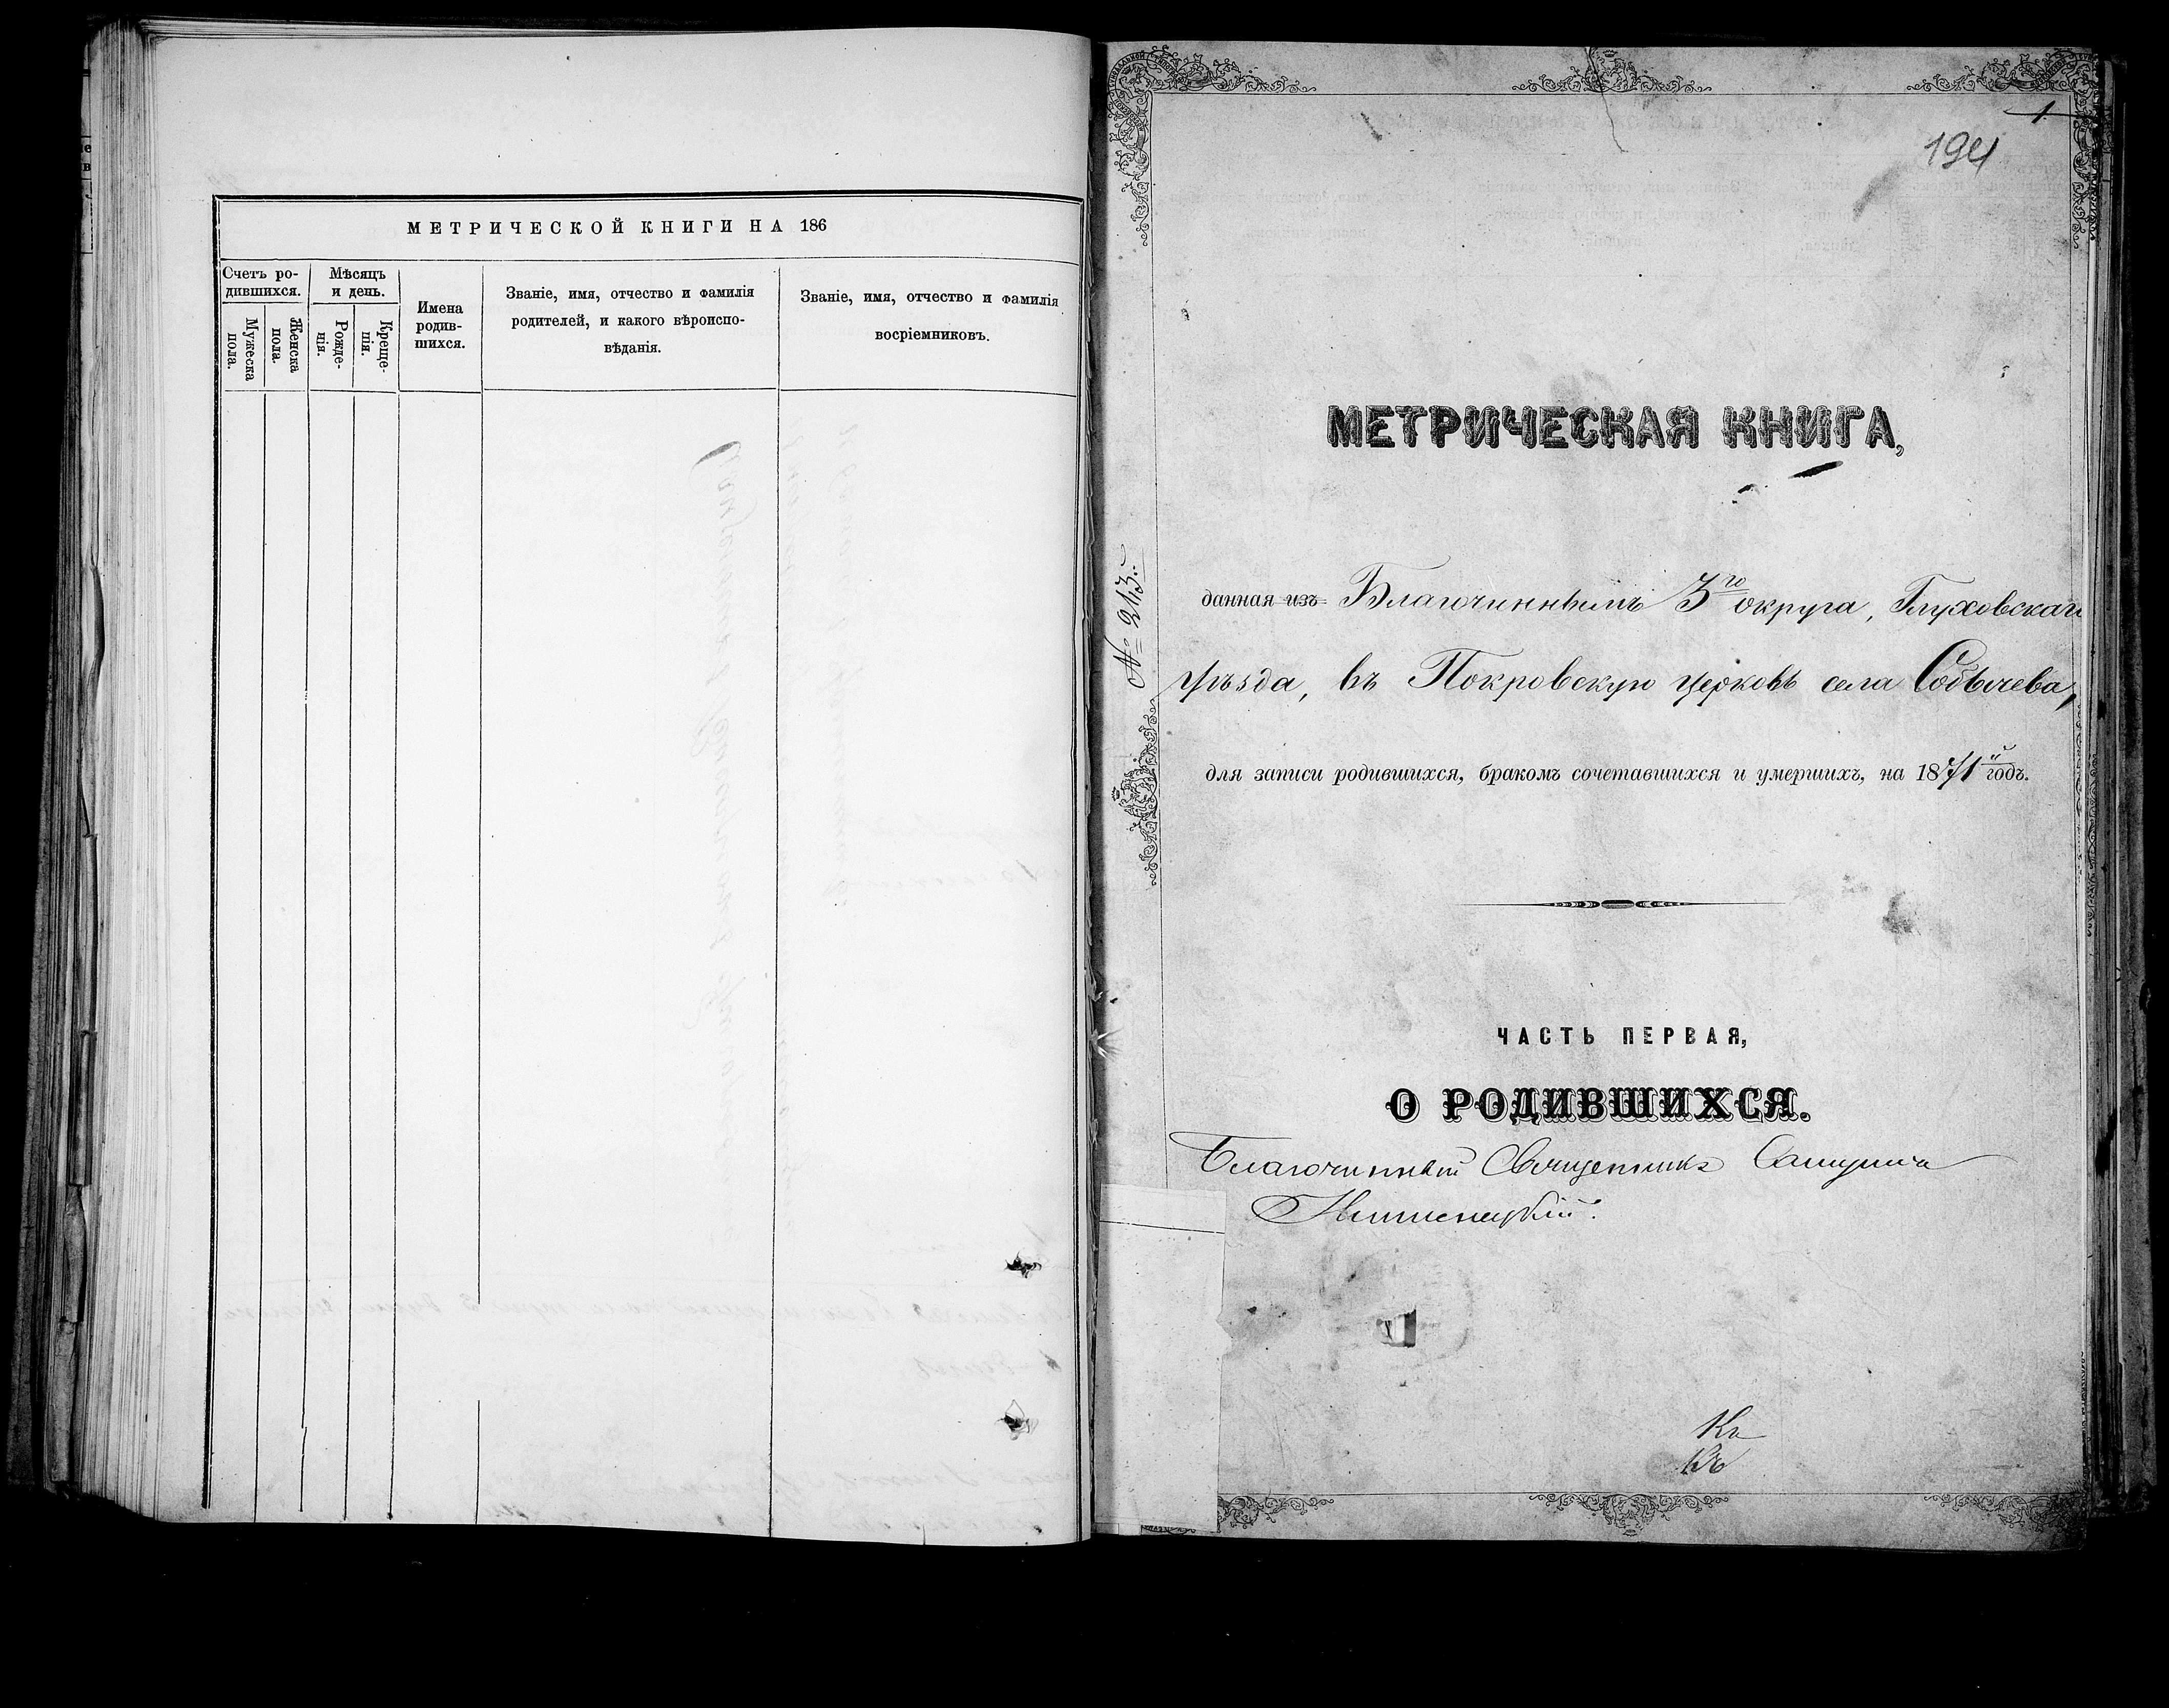 МЕТРИЧЕСКОЙ КНИГИ НА 186
Счетъ ро-
дившихся.
Мужеска
пола.
Женска
пола.
Мѣсяцъ
и день.
Рожде-
нія.
Креще-
нія.
Имена
родив-
шихся.
Званіе, имя, отчество и фамилія
родителей, и какого вѣроиспо-
вѣданія.
Званіе, имя, отчество и фамилія
восріемниковъ.
1
194
МЕТРИЧЕСКАЯ КНИГА,
№ 213.
данная изъ Благочиннымъ 3го округа, Глуховскаго
уѣзда, въ Покровскую церковь села Собычева,
для записи родившихся, бракомъ сочетавшихся и умершихъ, на 1871й годъ.
ЧАСТЬ ПЕРВАЯ,
О РОДИВШИХСЯ.
Благочинный Священникъ